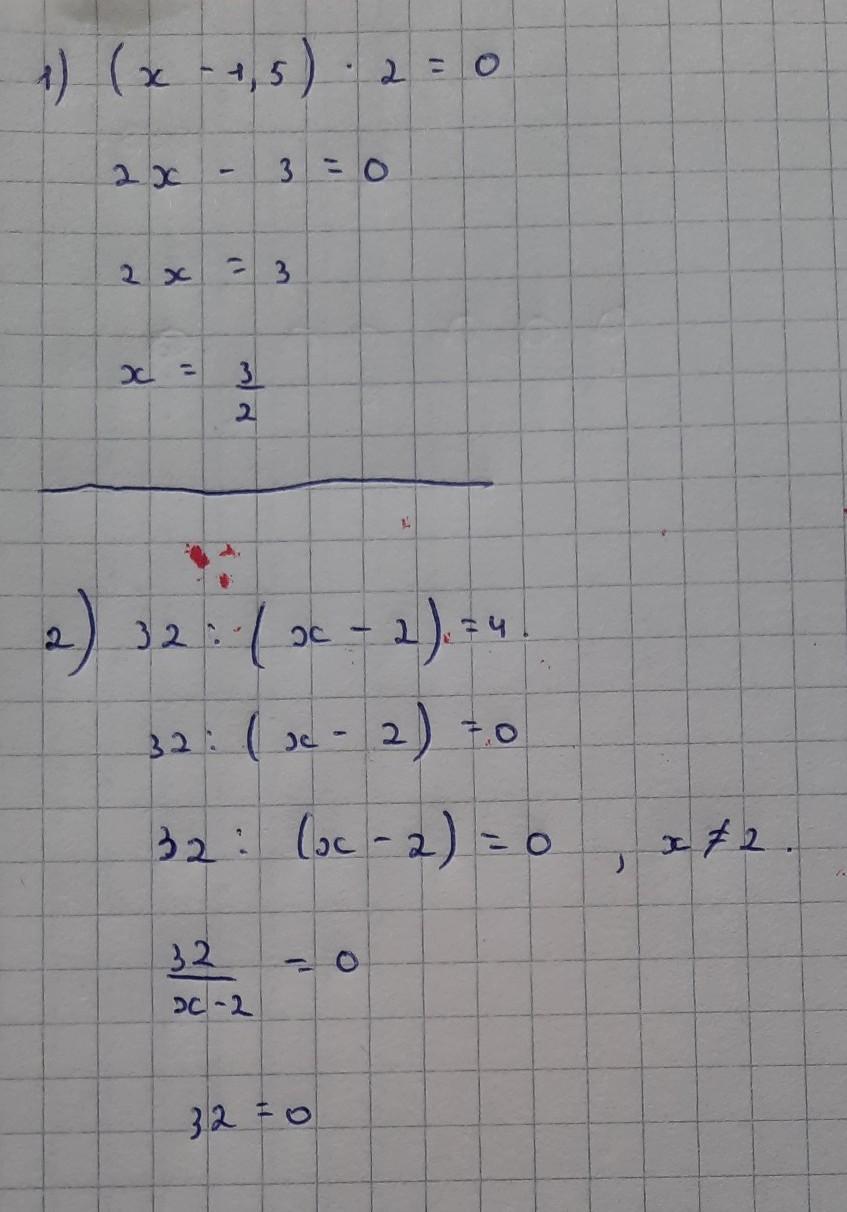 1) (x - 1,5) · 2 = 0
2x - 3 = 0
2x = 3
x = 3/2
2) 32 : (x - 2) = 4.
32 : (x - 2) = 0
32 : (x - 2) = 0 , x ≠ 2.
32/(x - 2) = 0
32 = 0